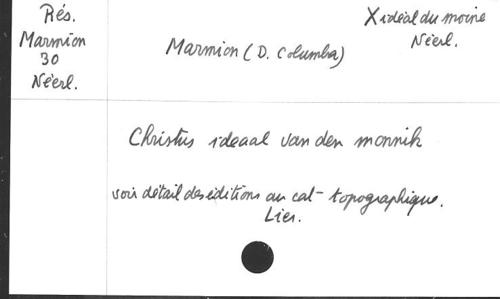 Rés.
Marmion
30
Néerl.
Marmion (D. Columba)
X idéal du moine
Néerl.
Christus ideaal van den monnik
voir détail des éditions au cat- topographique.
Lier.